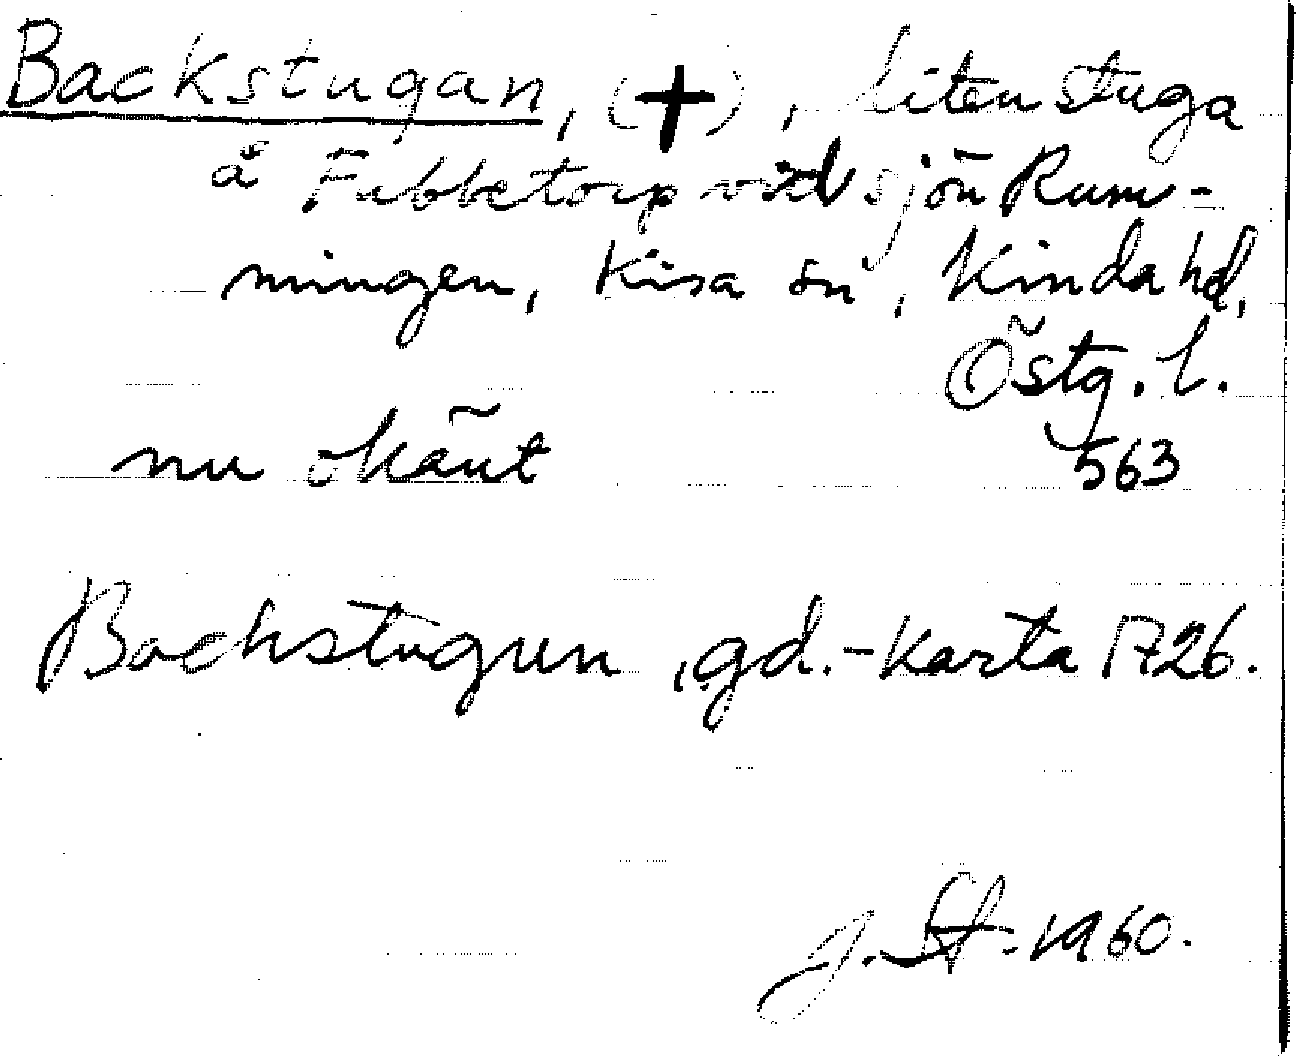 Backstugan, (+), liten stuga
å Fubbetorp vid sjön Rum-
mingen, Kisa sn, Kinda hd,
Östg. l.
nu okänt 563
Backstugun, gd.-karta 1726.
J. St. 1960.